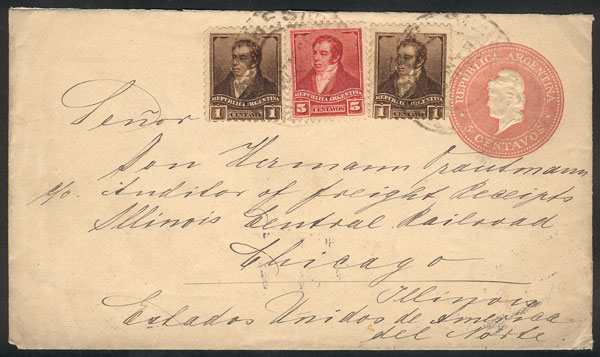 REPUBLICA ARGENTINA
1 CENTAVO 1
REPUBLICA ARGENTINA
5 CENTAVOS 5
REPUBLICA ARGENTINA
1 CENTAVO 1
REPUBLICA ARGENTINA
5 CENTAVOS
Señor
Don Hermann Trautmann
c/o. Auditor of freight Receipts
Illinois Central Railroad
Chicago
Illinois
Estados Unidos de America
del Norte.